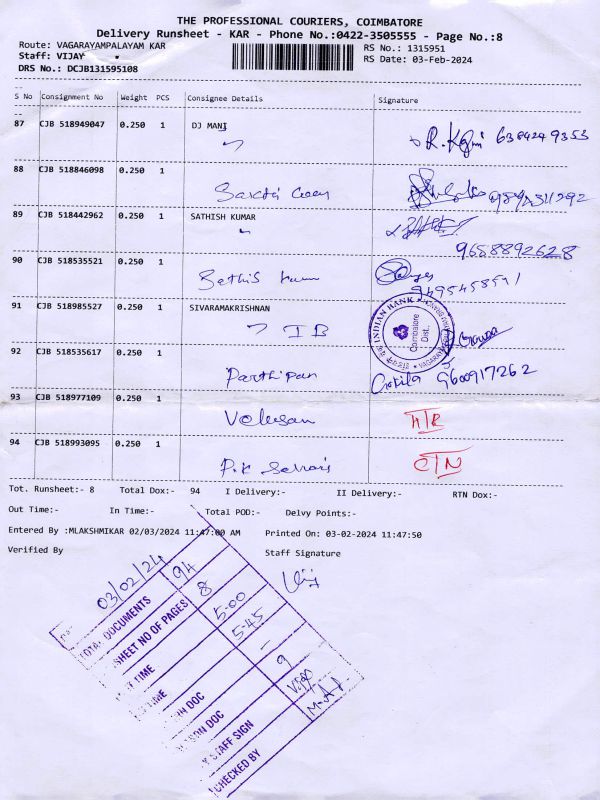 THE PROFESSIONAL COURIERS, COIMBATORE
Delivery Runsheet - KAR - Phone No.:0422-3505555 - Page No.:8
Route: VAGARAYAMPALAYAM KAR
RS No.: 1315951
Staff: VIJAY
RS Date: 03-Feb-2024
DRS No.: DCJB131595108
S No Consignment No Weight PCS Consignee Details Signature
87 CJB 518949047 0.250 1 DJ MANI
6384249355
88 CJB 518846098 0.250 1
89 CJB 518442962 0.250 1 SATHISH KUMAR
9658892628
90 CJB 518535521 0.250 1 Sathis
91 CJB 518985527 0.250 1 SIVARAMAKRISHNAN
IB
INDIAN BANK
Coimbatore
Dist.,
92 CJB 518535617 0.250 1 Parthipan
Gokila 9600917262
93 CJB 518977109 0.250 1 Velusan
94 CJB 518993095 0.250 1 P.K
Tot. Runsheet:- 8 Total Dox:- 94 I Delivery:- II Delivery:- RTN Dox:-
Out Time:- In Time:- Total POD:- Delvy Points:-
Entered By :MLAKSHMIKAR 02/03/2024 11:47:00 AM Printed On: 03-02-2024 11:47:50
Verified By Staff Signature
03/02/24
TOTAL DOCUMENTS 94
SHEET NO OF PAGES 8
TIME 5:00
TIME 5:45
DOC -
DOC 9
STAFF SIGN Vijay
CHECKED BY